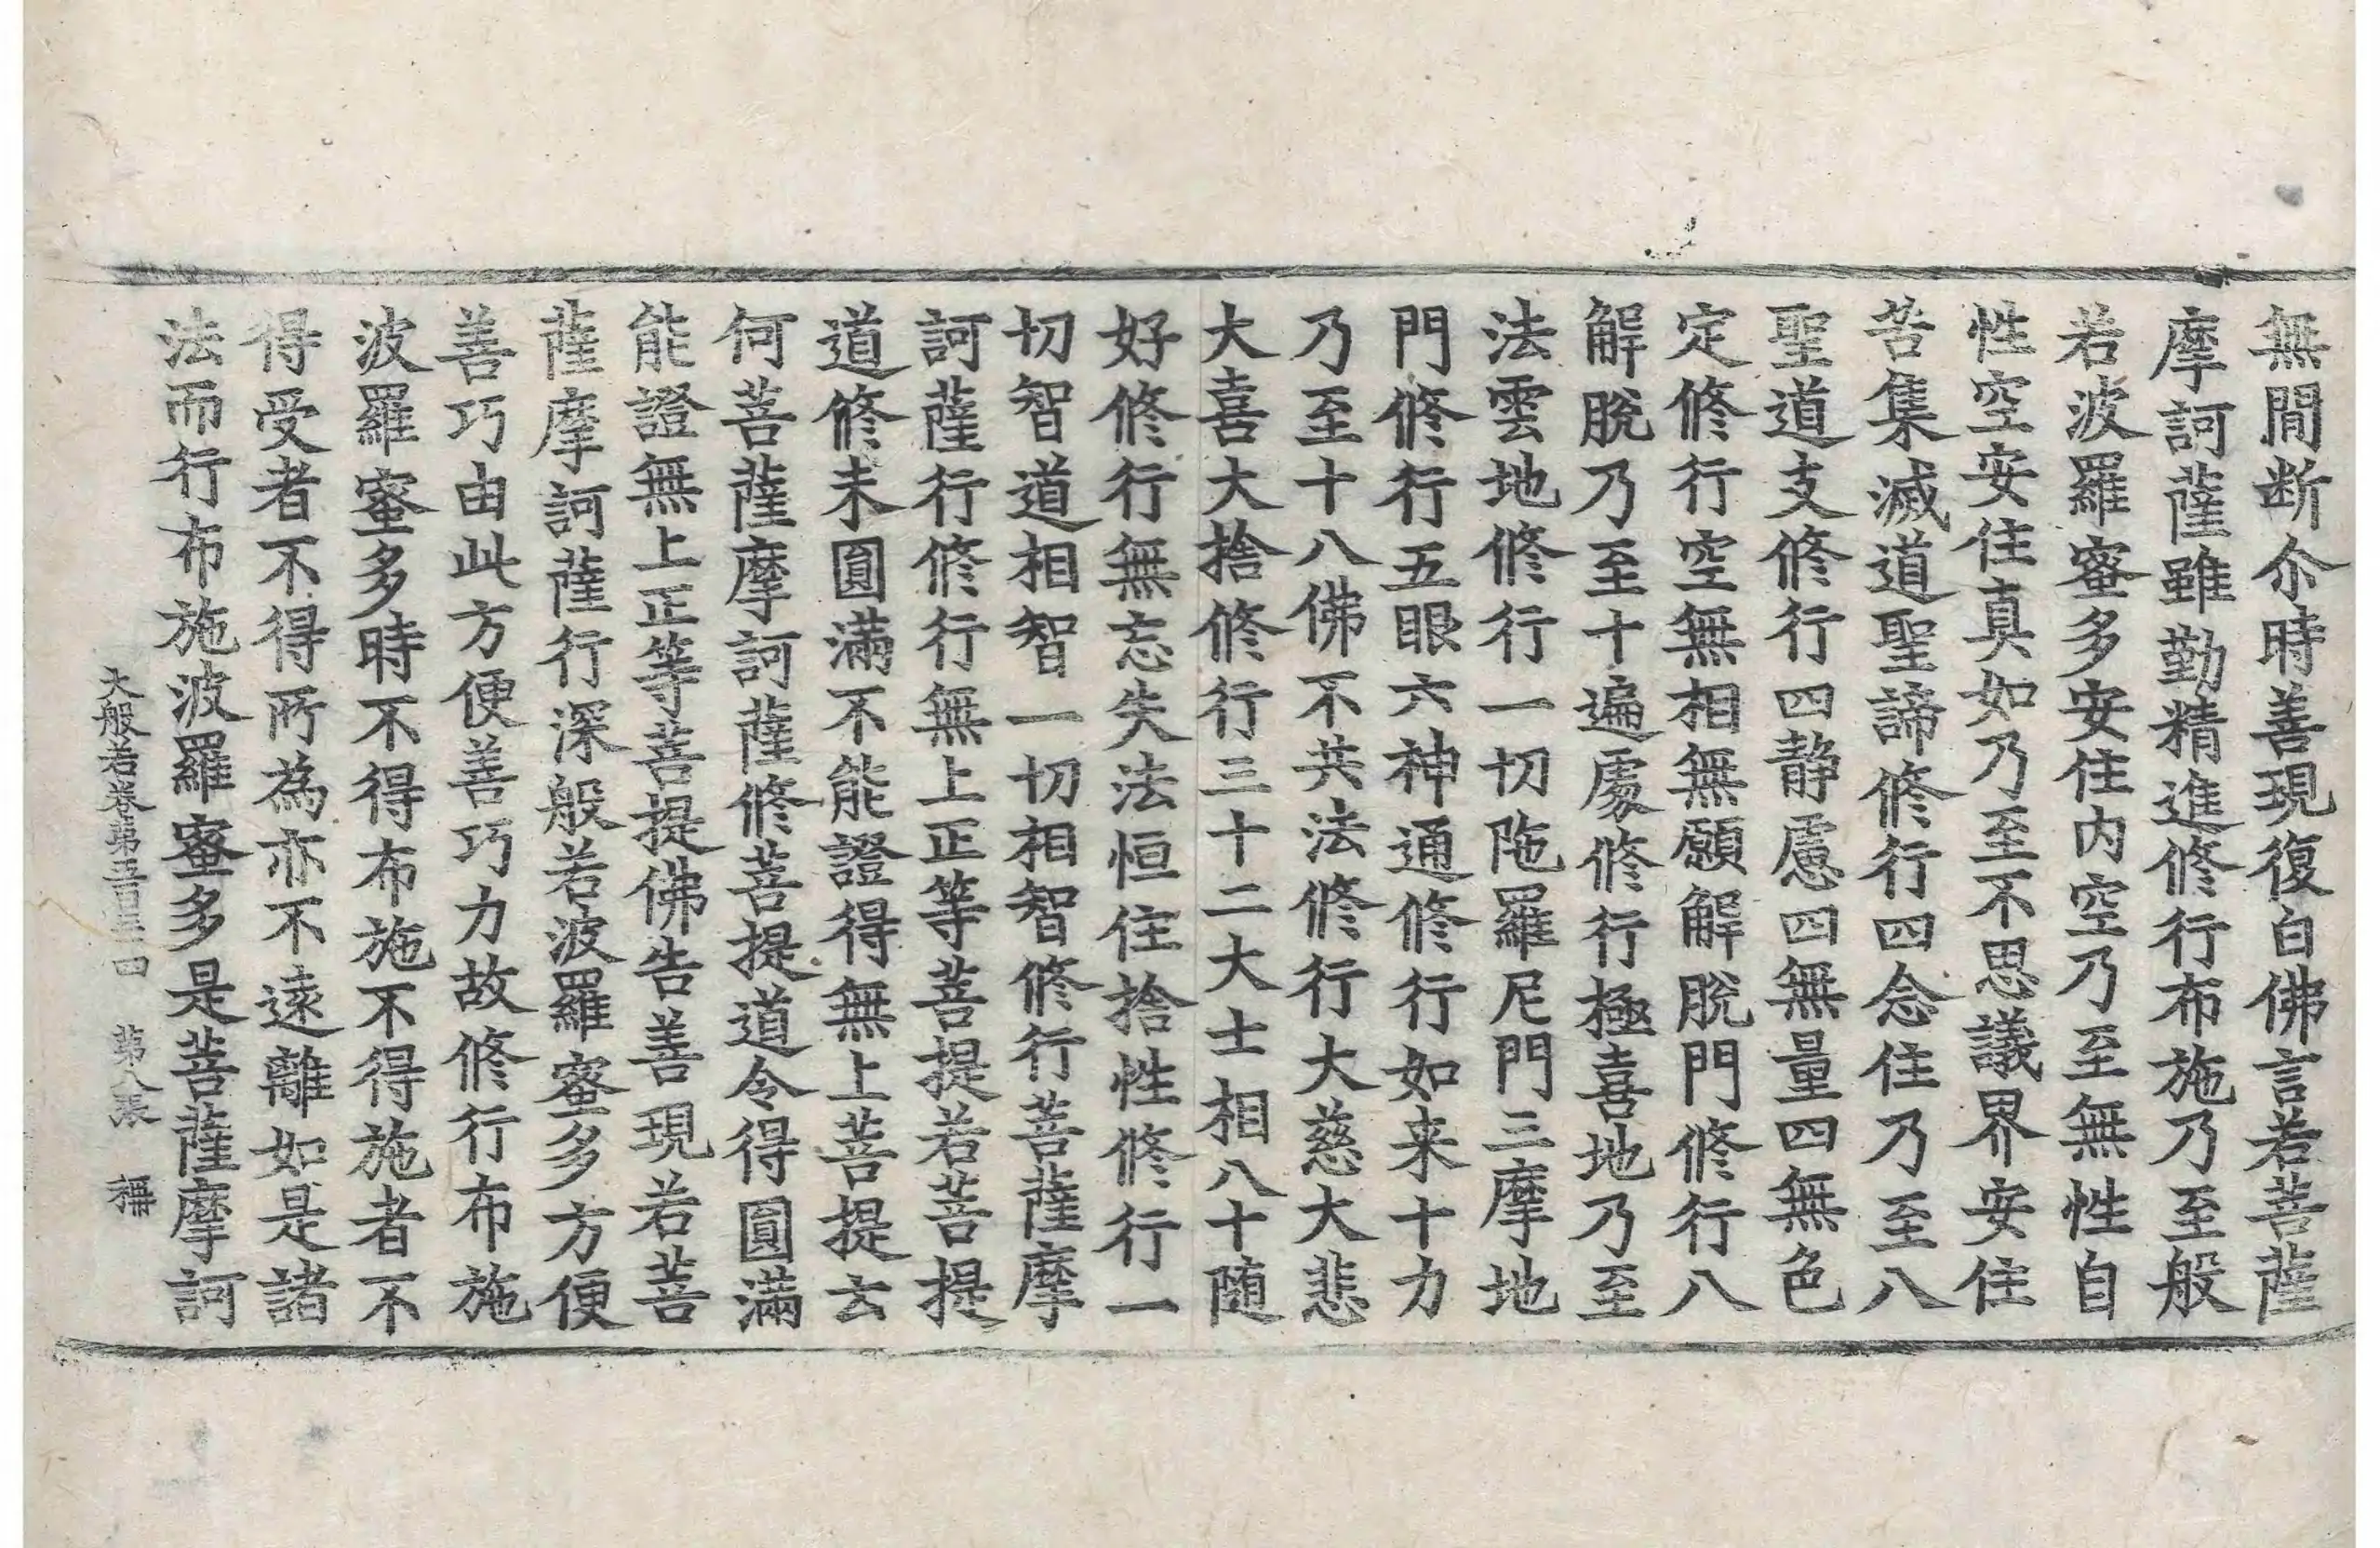 無間断尒時善現復白佛言若菩薩
摩訶薩雖勤精進修行布施乃至般
若波羅蜜多安住内空乃至無性自
性空安住真如乃至不思議界安住
苦集滅道聖諦修行四念住乃至八
聖道支修行四静慮四無量四無色
定修行空無相無願解脫門修行八
解脫乃至十遍處修行極喜地乃至
法雲地修行一切陁羅尼門三摩地
門修行五眼六神通修行如来十力
乃至十八佛不共法修行大慈大悲
大喜大捨修行三十二大士相八十随
好修行無忘失法恒住捨性修行一
切智道相智一切相智修行菩薩摩
訶薩行修行無上正等菩提若菩提
道修未圓滿不能證得無上菩提云
何菩薩摩訶薩修菩提道令得圓滿
能證無上正等菩提佛告善現若菩
薩摩訶薩行深般若波羅蜜多方便
善巧由此方便善巧力故修行布施
波羅蜜多時不得布施不得施者不
得受者不得所為亦不遠離如是諸
法而行布施波羅蜜多是菩薩摩訶
大般若卷第五百三十四 第八張 稱